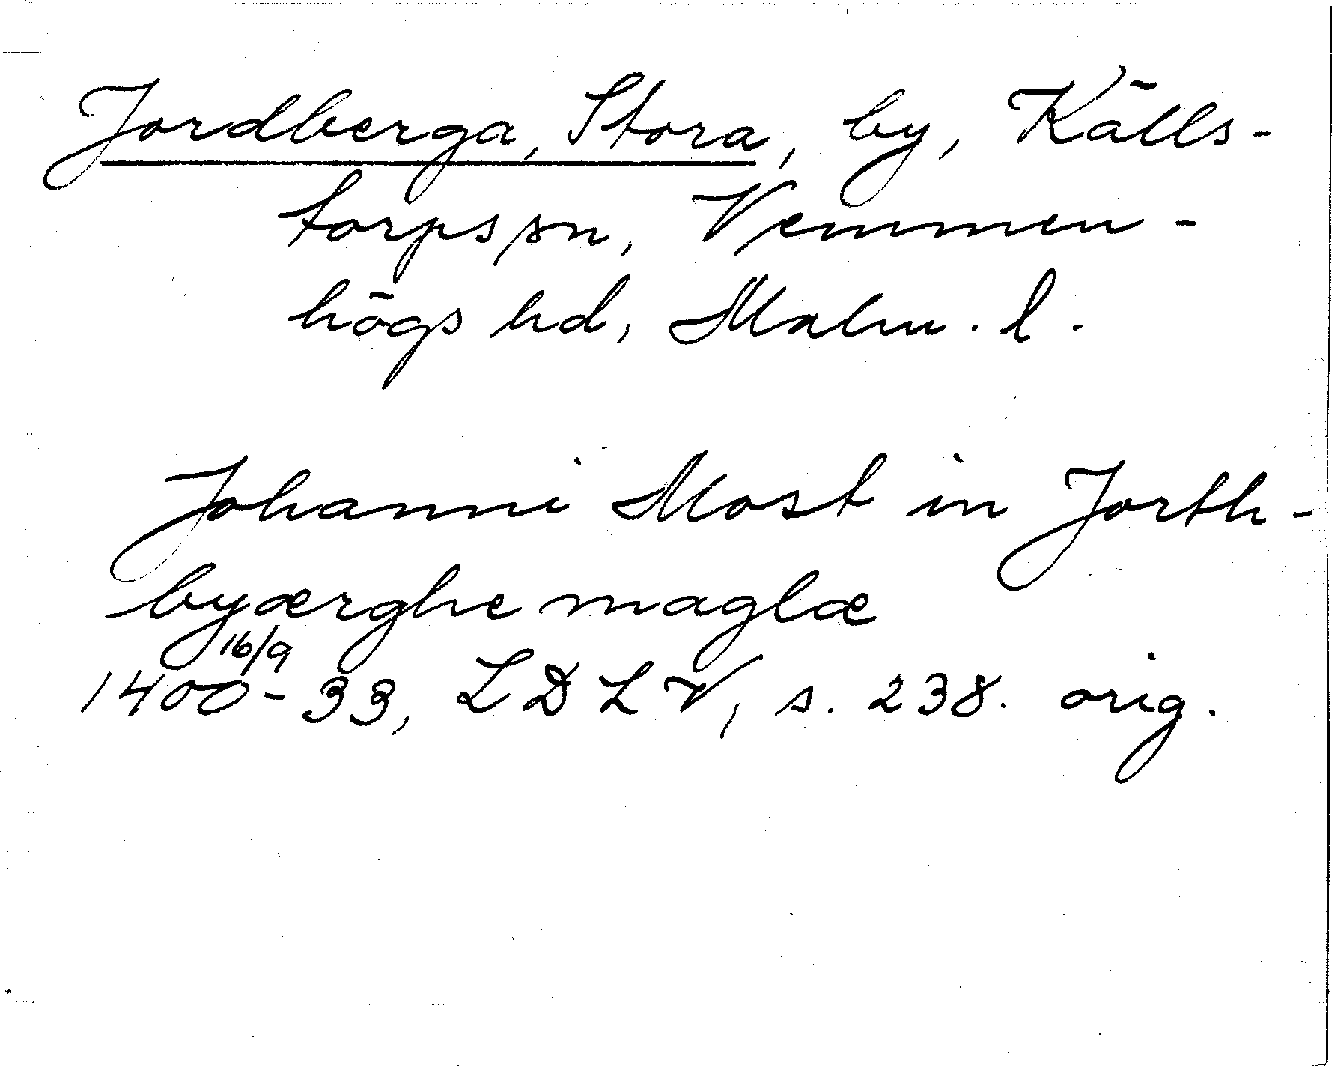 Jordberga, Stora, by, Källs-
torps sn, Vemmen-
högs hd, Malm. l.
Johanni Most in Jorth-
byærghe maglæ
16/9
1400-33, LDLV, s. 238. orig.